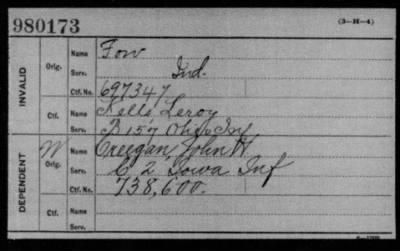 980173
(3—H—4)
INVALID
Orig.
Name Fow
Serv. Ind.
Ctf. No. 697347
Ctf.
Name Kells, Leroy
Serv. B 157 Ohio Inf
DEPENDENT
W Orig.
Name Creegan, John H.
Serv. C. 2, Iowa Inf
Ctf. No. 738,600.
Ctf.
Name
Serv.